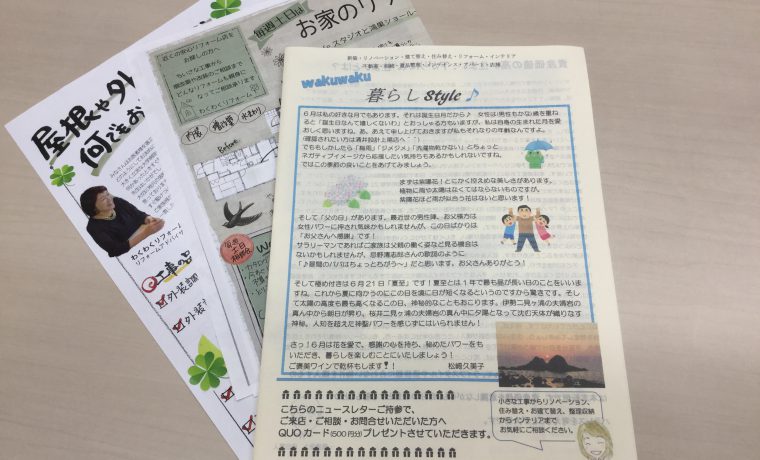 新築・リノベーション・建て替え・住み替え・リフォーム・インテリア
wakuwaku
暮らし Style ♪
6月は私の好きな月でもあります。それは誕生日月だから♪ 女性は(男性もかな)歳を重ね
ると「誕生日なんて嬉しくないわ」とおっしゃる方もいますが、私は自身の生まれた月を愛
おしく思いますね。あ、あえて申し上げておきますが私もそれなりの年齢なんですよ。
でももしかしたら「梅雨」「ジメジメ」「洗濯物乾かない」とちょっと
ネガティブイメージから応援したい気持ちもあるかもしれないですね。
ではこの季節の良いことをあげてみましょう。
まずは紫陽花!とにかく控えめな美しさがあります。
植物に雨や太陽はなくてはならないものですが、
紫陽花ほど雨が似合う花はないと思います!
そして「父の日」があります。最近世の男性陣、お父様方は
女性パワーに押され気味かもしれませんが、この日ばかりは
「お父さんへ感謝」です!
サラリーマンであればご家族は父親の働く姿など見る機会は
ないかもしれませんが、忌野清志郎さんの歌詞のように
「♪昼間のパパはちょっとちがう～」だと思います。お父さんありがとう!
そして極め付きは6月21日「夏至」です!夏至とは1年で最も昼が長い日のことをいいま
すね。これから夏に向かうのにこの日を境に日が短くなるというのですから驚きです。そし
て太陽の高度も最も高くなるこの日、神秘的なこともおこります。伊勢二見ヶ浦の夫婦岩の
真ん中から朝日が昇り、桜井二見ヶ浦の夫婦岩の真ん中に夕陽となって沈む天体が織りなす
神秘。人知を超えた神聖パワーを感じずにはいられません!
さっ!6月は花を愛で、感謝の心を持ち、秘めたパワーをも
いただき、暮らしを楽しむことにいたしましょう!
ご褒美ワインで乾杯もします!! 松崎久美子
こちらのニュースレターご持参で、
ご来店・ご相談・お問合せいただいた方へ
QUOカード(500円分)プレゼントさせていただきます。
小さな工事からリノベーション、
住み替え・お建て替え、整理収納
からインテリアまで
お気軽にご相談ください。
毎週土日は
お家のリ
スタジオと鴻巣ショール
安心リフォーム店を
お探しの方へ
ちいさな工事から
どんなリフォームも親身に
なってご相談承ります
わくわくリフォーム
Before
屋根や外
何でもお
わくわくリフォーム
リフォームアドバイザ
工事の品
外装調
外装